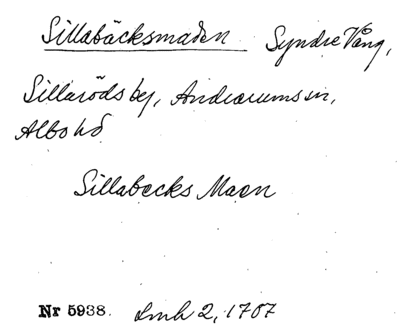 Sillabäcksmaden Syndre Vång,
Sillaröds by, Andrarums sn,
Albo hd
Sillabecks Maen
Nr 5938. Lmh 2, 1707